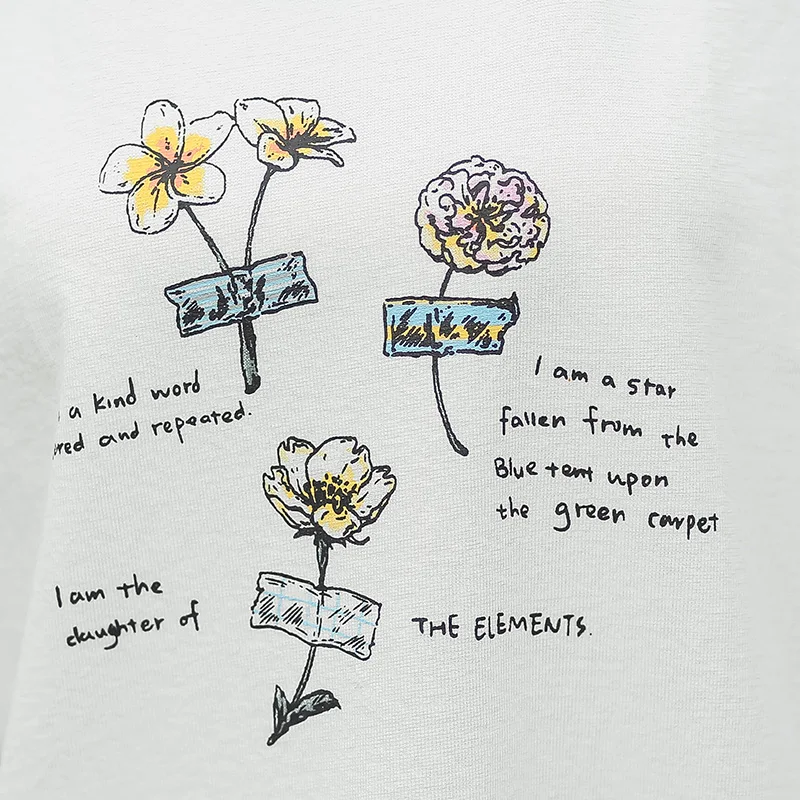 a kind word
red and repeated.
I am a star
fallen from the
Blue tent upon
the green carpet
I am the
daughter of
THE ELEMENTS.